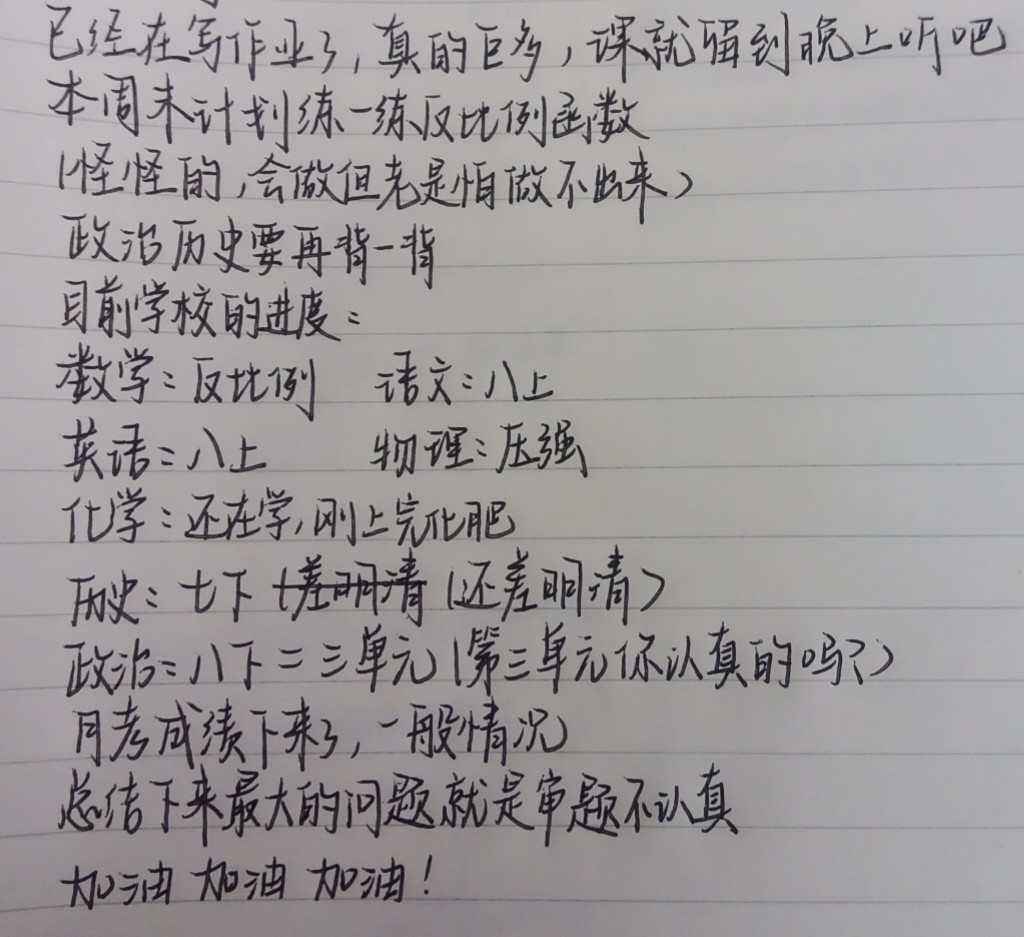 已经在写作业了,真的巨多,课就留到晚上听吧
本周末计划练一练反比例函数
(怪怪的,会做但老是怕做不出来)
政治历史要再背一背
目前学校的进度:
数学:反比例 语文:八上
英语:八上 物理:压强
化学:还在学,刚上完化肥
历史:七下 (差明清 (还差明清)
政治:八下二三单元(第三单元你认真的吗?)
月考成绩下来了,一般情况
总结下来最大的问题就是审题不认真
加油 加油 加油!